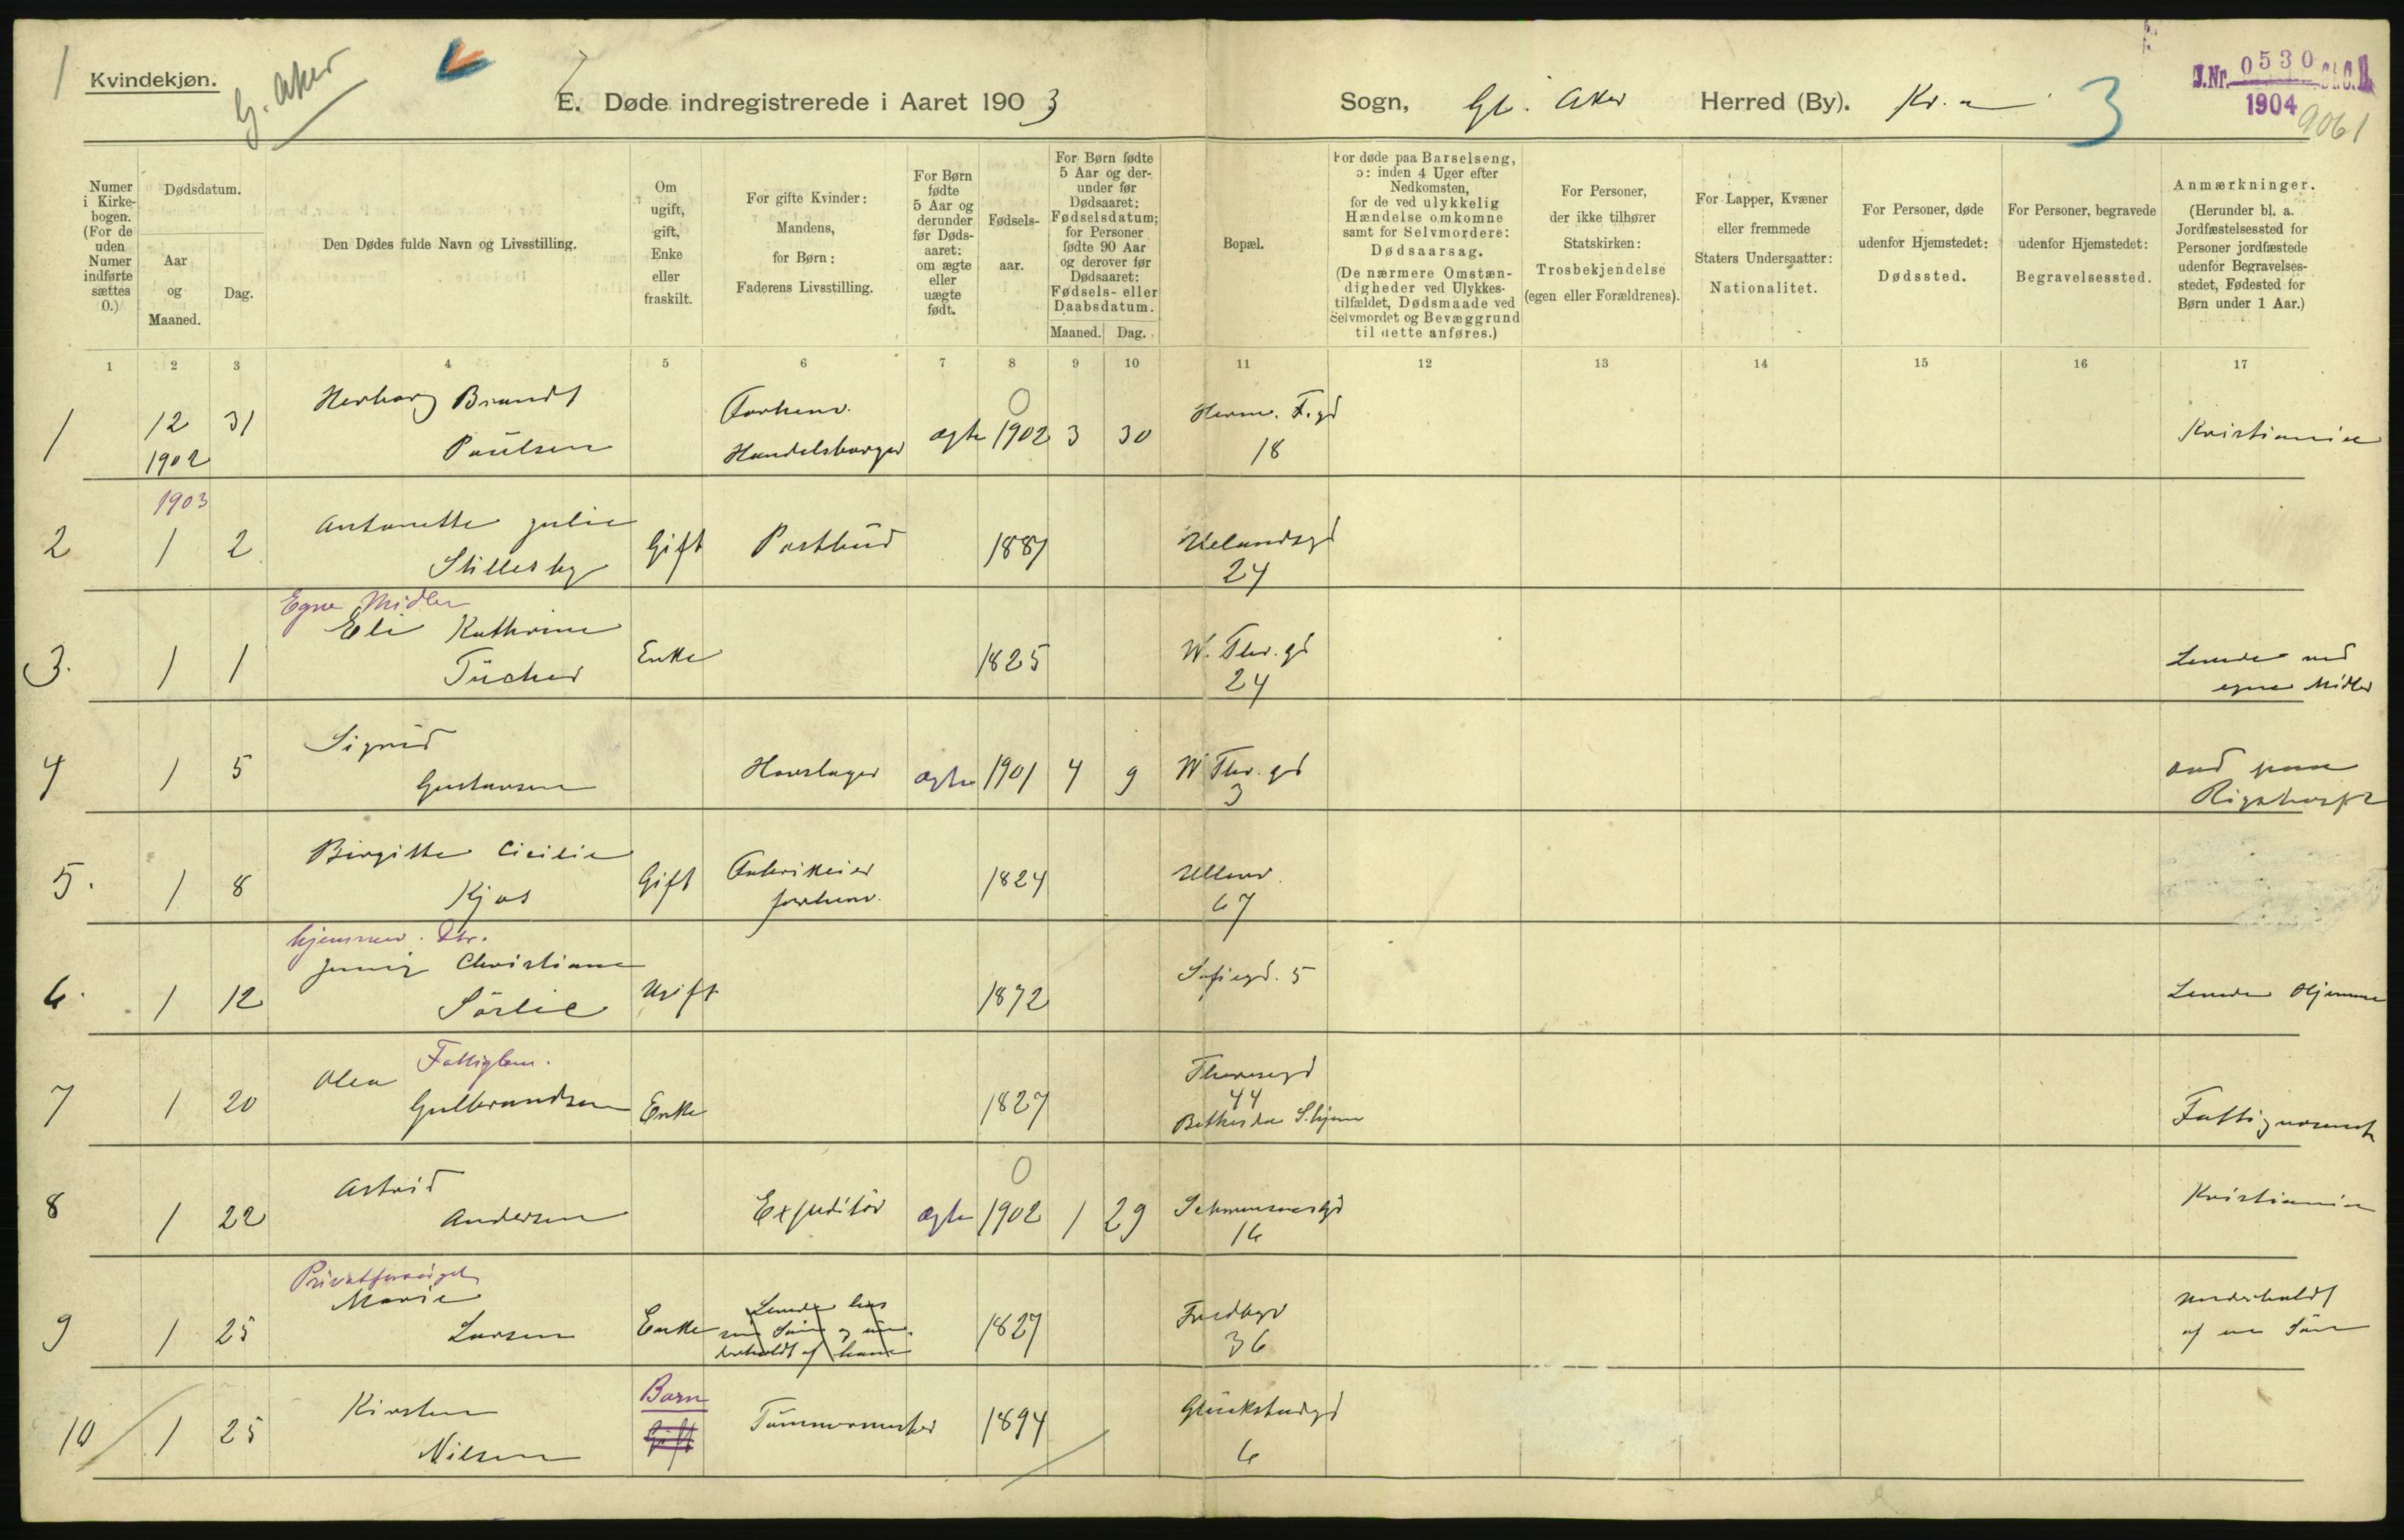 1 Kvindekjøn.
G. Aker
E. Døde indregistrerede i Aaret 1903 Sogn, Gl. Aker Herred (By). Kr.a
3
J.Nr. 0530 St.C.B.
1904
9061
Numer i Kirke-bogen. (For de uden Numer indførte sættes 0.)
Dødsdatum.
Aar og Maaned.
Dag.
Den Dødes fulde Navn og Livsstilling.
Om ugift, gift, Enke eller fraskilt.
For gifte Kvinder: Mandens, for Børn: Faderens Livsstilling.
For Børn fødte 5 Aar og derunder før Døds-aaret: om ægte eller uægte født.
Fødsels-aar.
For Børn fødte 5 Aar og der-under før Dødsaaret: Fødselsdatum; for Personer fødte 90 Aar og derover før Dødsaaret: Fødsels- eller Daabsdatum.
Maaned. Dag.
Bopæl.
For døde paa Barselseng, ɔ: inden 4 Uger efter Nedkomsten, for de ved ulykkelig Hændelse omkomne samt for Selvmordere: Dødsaarsag. (De nærmere Omstæn-digheder ved Ulykkes-tilfældet, Dødsmaade ved Selvmordet og Bevæggrund til dette anføres.)
For Personer, der ikke tilhører Statskirken: Trosbekjendelse (egen eller Forældrenes).
For Lapper, Kvæner eller fremmede Staters Undersaatter: Nationalitet.
For Personer, døde udenfor Hjemstedet: Dødssted.
For Personer, begravede udenfor Hjemstedet: Begravelsessted.
Anmærkninger. (Herunder bl. a. Jordfæstelsessted for Personer jordfæstede udenfor Begravelses-stedet, Fødested for Børn under 1 Aar.)
1 2 3 4 5 6 7 8 9 10 11 12 13 14 15 16 17
1 12 31 Herborg Brandt Forhenv. 0 Herm. F.gd
1902 Paulsen Handelsborger ægte 1902 3 30 18 Kristiania
1903
2 1 2 Antonette Julie Gift Postbud 1887 Uelandsgd
Stillesby 24
Egne Midler
3. 1 1 Eli Kathrine Enke 1825 W. Thr. gd Levede ved
Tücher 24 egne Midler
4 1 5 Sigrid Hovslager ægte 1901 4 9 W Thr. gd
Gustavsen 3 Rigshosp
5. 1 8 Birgitte Cicilie Gift Fabrikeier 1824 Ullev.
Kjos forhenv. 67
hjemmev. Dtr.
6. 1 12 Jenny Christiane Ugift 1872 Sofiegd. 5 Levede Hjemme
Sörlie
Fattiglem.
7 1 20 Olea Enke 1827 Theresegd
Gulbrandsen 44
Bethesda S.hjem
8 1 22 Astrid Expeditör ægte 0 1902 1 29 Kristiania
Andersen 16
Privatforsörget
9 1 25 Marie Enke Levede hos 1827 Fredbgd Underholdt
Larsen sin Sön og un- 36 af en Sön
derholdt af ham
Barn
10 1 25 Kirsten Gift Tömmermester 1894 Glückstadgd
Nilsen 6